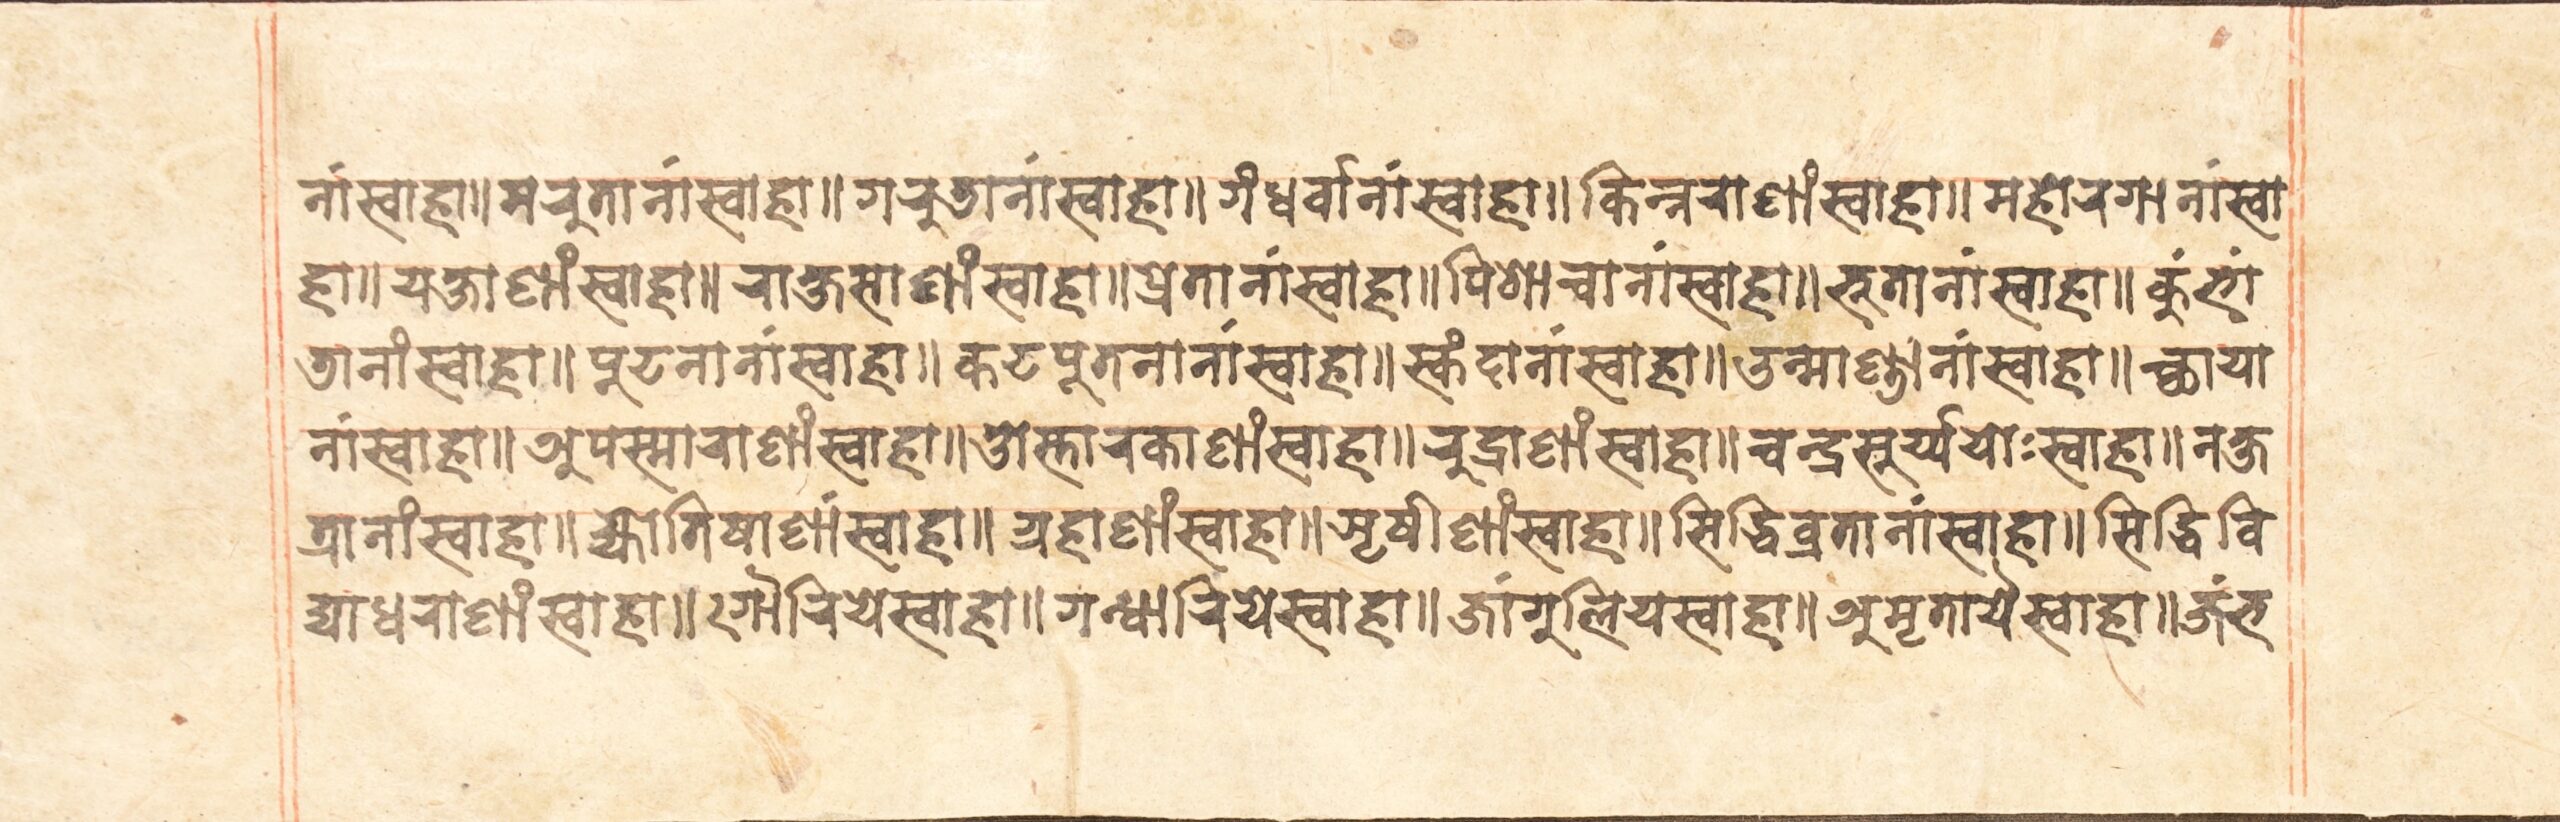 नां स्वाहा॥ मरुतानां स्वाहा॥ गरुडानां स्वाहा॥ गंधर्वानां स्वाहा॥ किन्नराणां स्वाहा॥ महोरगानां स्वा
हा॥ यक्षाणां स्वाहा॥ राक्षसाणां स्वाहा॥ प्रेतानां स्वाहा॥ पिशाचानां स्वाहा॥ भुतानां स्वाहा॥ कुंभां
डानां स्वाहा॥ पुटनानां स्वाहा॥ कटपुतनानां स्वाहा॥ स्कंदानां स्वाहा॥ उन्माण्डानां स्वाहा॥ च्छाया
नां स्वाहा॥ अपस्माराणां स्वाहा॥ ओस्तारकाणां स्वाहा॥ रुद्राणां स्वाहा॥ चन्द्रसुर्य्ययोः स्वाहा॥ नक्ष
त्रानां स्वाहा॥ ज्योतिषाणां स्वाहा॥ ग्रहाणां स्वाहा॥ ऋषीणां स्वाहा॥ सिद्धिव्रतानां स्वाहा॥ सिद्धिवि
द्याधराणां स्वाहा॥ गौरिये स्वाहा॥ गन्धारिये स्वाहा॥ जांगुलिय स्वाहा॥ अमृतायै स्वाहा॥ जंभ